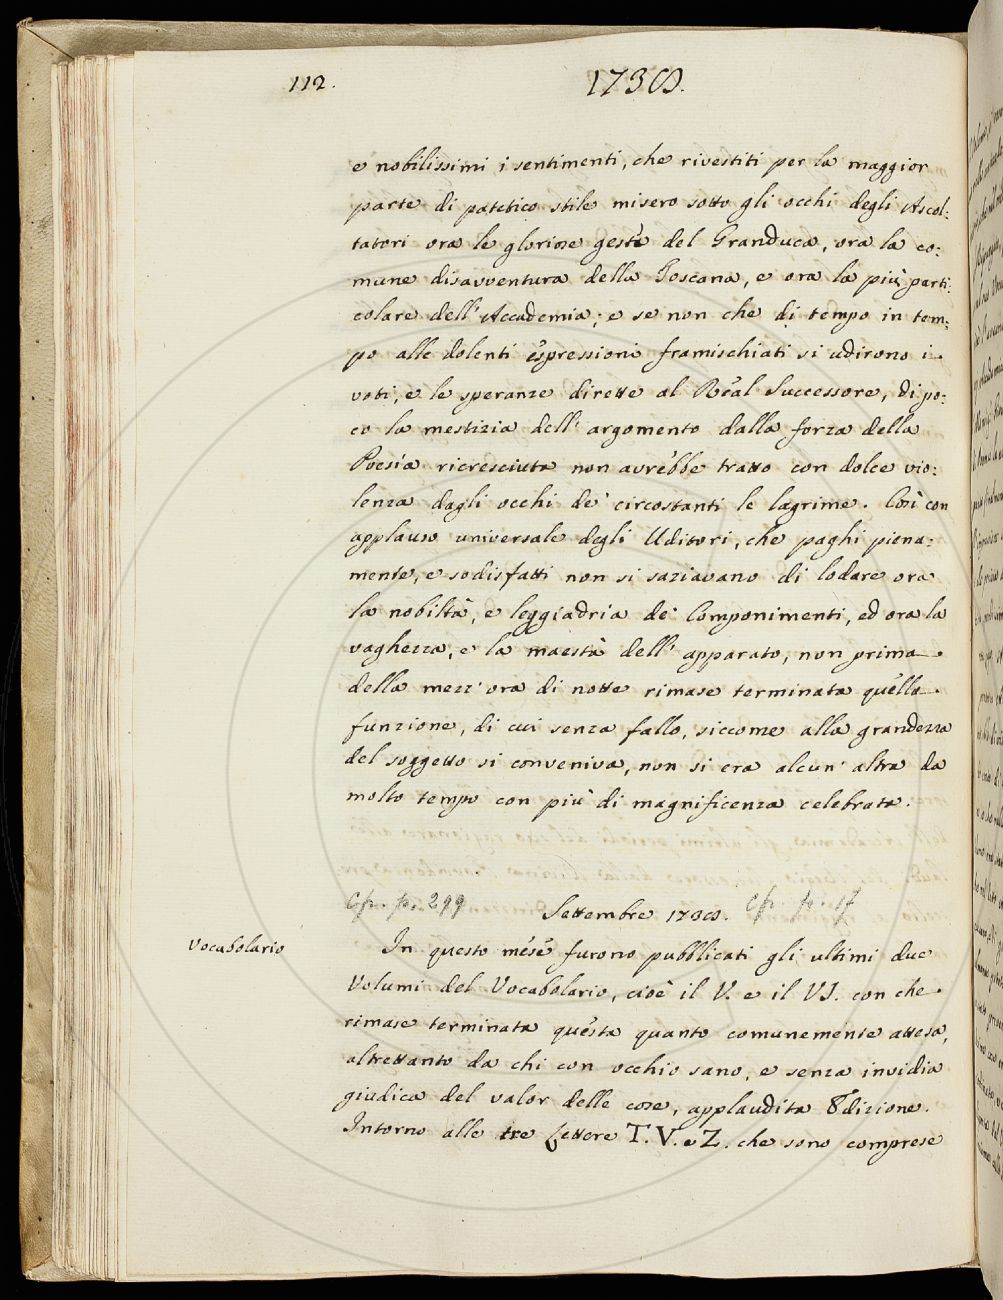 112.
1738.
e nobilissimi i sentimenti, che rivestiti per la maggior
parte di patetico stile misero sotto gli occhi degli Ascol:
tatori ora le gloriose gesta del Granduca, ora la co:
mune disavventura della Toscana, e ora la più parti:
colare dell'Accademia; e se non che di tempo in tem:
po alle dolenti espressioni framischiati si udirono i
voti, e le speranze dirette al Real Successore, di po:
co la mestizia dell'argomento dalla forza della
Poesia ricresciuta non avrebbe tratto con dolce vio:
lenza dagli occhi de' circostanti le lagrime. Così con
applauso universale degli Uditori, che paghi piena:
mente, e sodisfatti non si saziavano di lodare ora
la nobiltà, e leggiadria de' Componimenti, ed ora la
vaghezza, e la maestà dell'apparato, non prima
della mezz'ora di notte rimase terminata quella
funzione, di cui senza fallo, siccome alla grandezza
del soggetto si conveniva, non si era alcun'altra da
molto tempo con più di magnificenza celebrata.
cfr. p. 299
Settembre 1738.
cfr. p. 17
Vocabolario
In questo mese furono pubblicati gli ultimi due
Volumi del Vocabolario, cioè il V. e il VI. con che
rimase terminata questa quanto comunemente attesa,
altrettanto da chi con occhio sano, e senza invidia
giudica del valor delle cose, applaudita Edizione.
Intorno alle tre Lettere T. V. e Z. che sono comprese